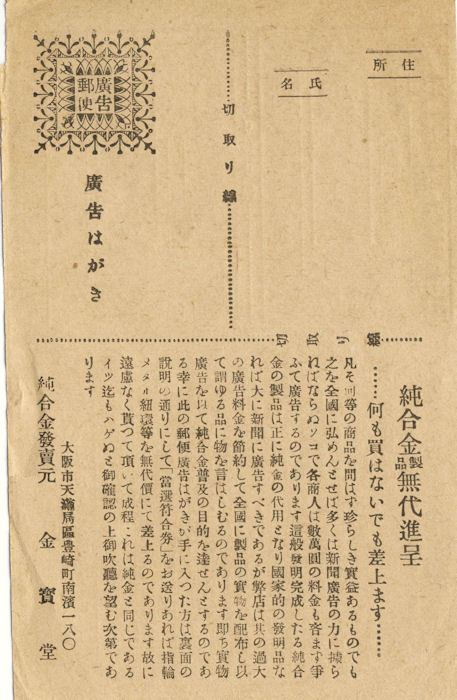 住所
氏名
切取り線
廣告
郵便
廣告はがき
切取り線
純合金製品無代進呈
……何も買はないでも差上ます……
凡そ何等の商品を問はず珍らしき實益あるものでも
之を全國に弘めんとせば多くは新聞廣告の力に據ら
ればならぬソコで各商人は數萬圓の料金も吝まず爭
ふて廣告するのであります這般發明完成したる純合
金の製品は正に純金の代用となり國家的の發明品な
れば大に新聞に廣告すべきであるが弊店は其の過大
の廣告料金を節約して全國に製品の實物を配布し以
て謂ゆる品に物を言はしむるのであります即ち實物
廣告を以て純合金普及の目的を達せんとするのであ
る幸に此の郵便廣告はがきが手に入つた方は裏面の
説明の通りにして「當選符合券」をお送りあれば指輪
メタル紐環等を無代價にて差上るのであります故に
遠慮なく貰つて頂いて成程これは純金と同じである
イツ迄もハゲぬと御確認の上御吹聽を望む次第であ
ります
大阪市天滿局區豊崎町南濱一八〇
純合金發賣元 金寶堂